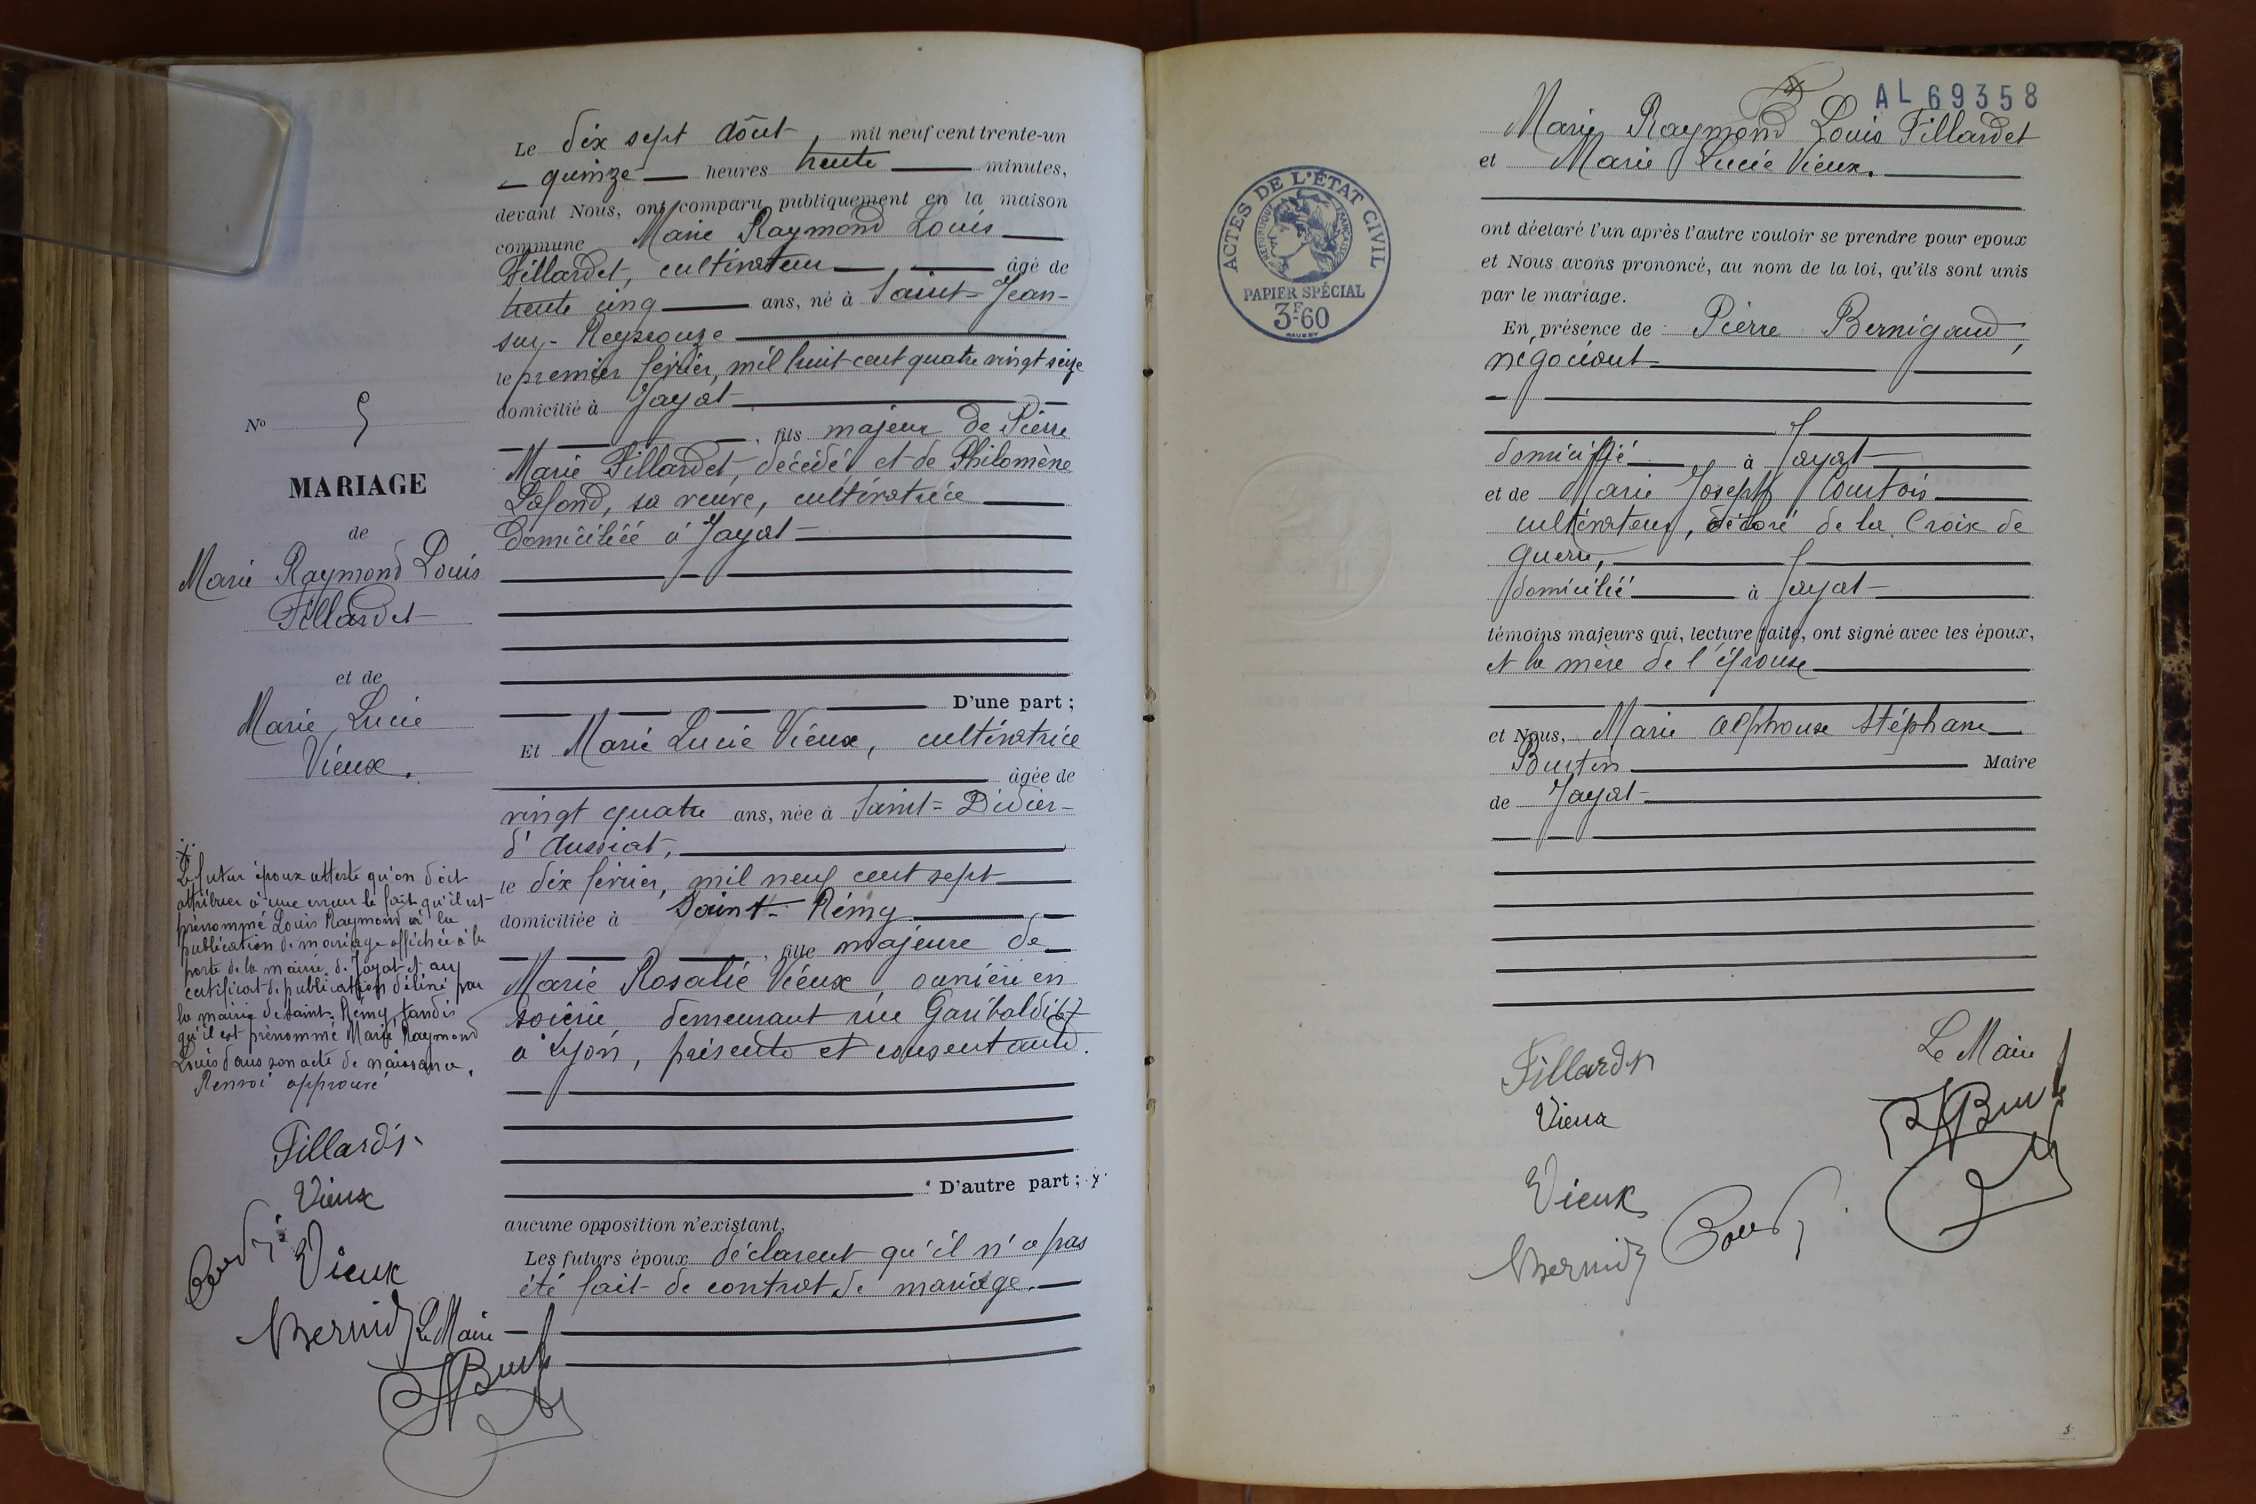 N° 5
MARIAGE
de
Marie Raymond Louis
Fillardet
et de
Marie Lucie
Vieux.
Le futur époux atteste qu'on doit
attribuer à une erreur le fait qu'il est
prénommé Louis Raymond à la
publication de mariage affichée à la
porte de la mairie de Jayat et au
certificat de publication délivré par
la mairie de Saint-Rémy, tandis
qu'il est prénommé Marie Raymond
Louis dans son acte de naissance.
Renvoi approuvé
Fillardet
Vieux
Vieux
Le Maire
Le dix sept Août, mil neuf cent trente-un
quinze heures trente minutes,
devant Nous, ont comparu publiquement en la maison
commune Marie Raymond Louis
Fillardet, cultivateur, âgé de
trente cinq ans, né à Saint-Jean-
sur-Reyssouze
le premier février, mil huit cent quatre vingt seize
domicilié à Jayat
, fils majeur de Pierre
Marie Fillardet, décédé, et de Philomène
Lafond, sa veuve, cultivatrice
domiciliée à Jayat
D'une part ;
Et Marie Lucie Vieux, cultivatrice
âgée de
vingt quatre ans, née à Saint-Didier-
d'Aussiat,
le dix février, mil neuf cent sept
domiciliée à Saint-Rémy
, fille majeure de
Marie Rosalie Vieux, ouvrière en
soierie, demeurant rue Garibaldi 67
à Lyon, présente et consentante.
D'autre part ;
aucune opposition n'existant,
Les futurs époux déclarent qu'il n'a pas
été fait de contrat de mariage.
AL 69358
Marie Raymond Louis Fillardet
et Marie Lucie Vieux.
ACTES DE L'ÉTAT CIVIL
RÉPUBLIQUE FRANÇAISE
PAPIER SPÉCIAL
3F60
ont déclaré l'un après l'autre vouloir se prendre pour époux
et Nous avons prononcé, au nom de la loi, qu'ils sont unis
par le mariage.
En présence de : Pierre Bernigaud,
négociant
domicilié à Jayat
et de Marie Joseph Courtois
cultivateur, décoré de la Croix de
guerre,
domicilié à Jayat
témoins majeurs qui, lecture faite, ont signé avec les époux,
et la mère de l'épouse
et Nous, Marie Alphonse Stéphane
Burtin Maire
de Jayat
Fillardet
Vieux
Vieux
Le Maire